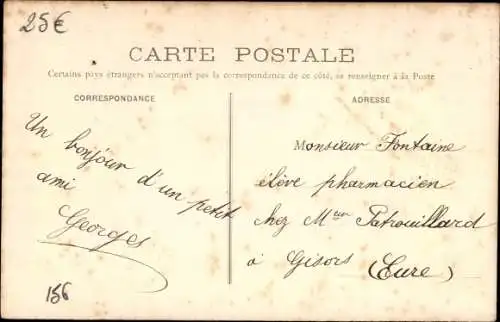 25€
CARTE POSTALE
Certains pays étrangers n'acceptant pas la correspondance de ce côté, se renseigner à la Poste
CORRESPONDANCE
Un bonjour d'un petit
ami
Georges
156
ADRESSE
Monsieur Fontaine
élève pharmacien
chez Meur Patrouillard
à Gisors (Eure)